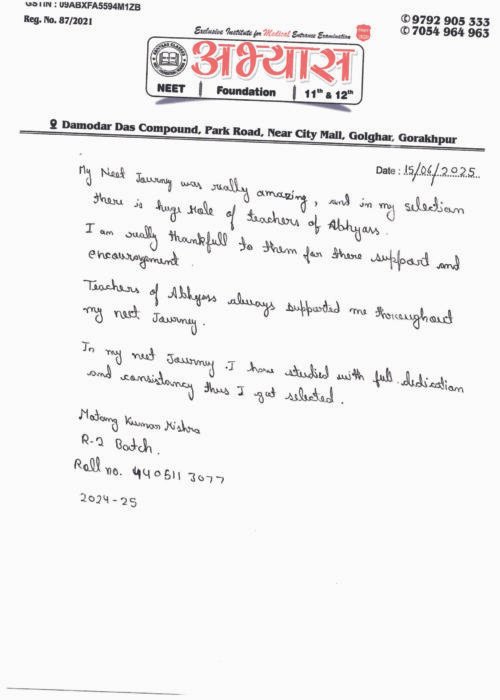 GSTIN : 09ABXFA5594M1ZB
Reg. No. 87/2021
✆ 9792 905 333
✆ 7054 964 963
Exclusive Institute for Medical Entrance Examination
अभ्यास
NEET | Foundation | 11th & 12th
Damodar Das Compound, Park Road, Near City Mall, Golghar, Gorakhpur
Date : 15/06/2025
My Neet Journey was really amazing, and in my selection
there is huge role of teachers of Abhyass.
I am really thankfull to them for there support and
encouragement.
Teachers of Abhyass always supported me thoroughout
my neet Journey.
In my neet Journey. I have studied with full dedication
and consistancy thus I got selected.
Matang Kumar Mishra
R-2 Batch.
Roll no. 4405113077
2024-25